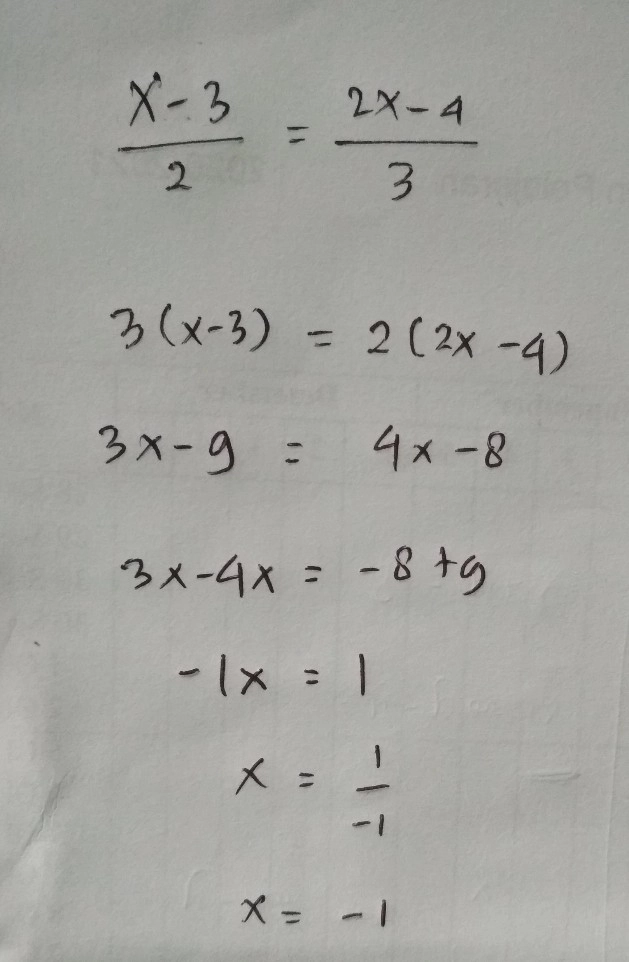 x-3/2 = 2x-4/3
3(x-3) = 2(2x-4)
3x-9 = 4x-8
3x-4x = -8+9
-1x = 1
x = 1/-1
x = -1